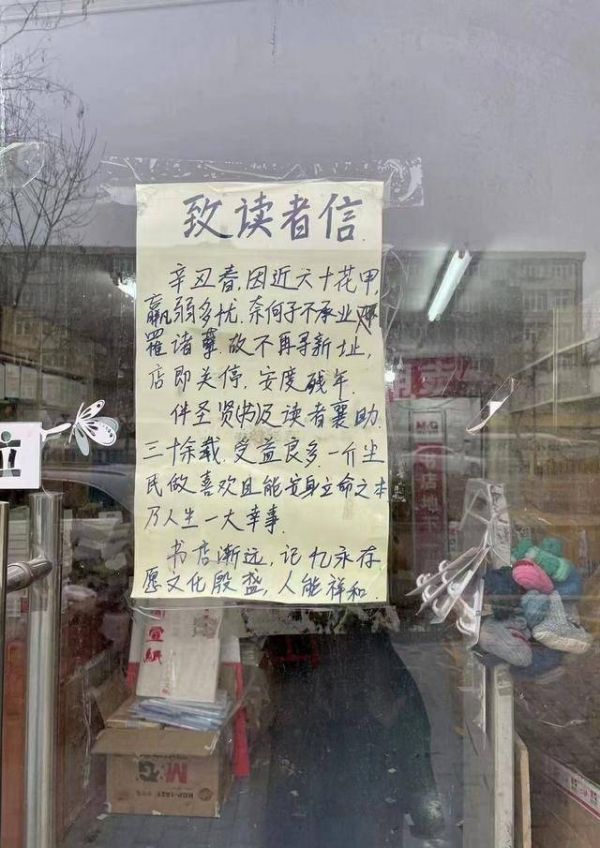 致读者信
辛丑春,因近六十花甲,
羸弱多忧,奈何子不承业
罹诸事.故不再寻新址,
店即关停.安度残年.
伴圣贤书及读者襄助.
三十余载.受益良多.一介尘
民做喜欢且能安身立命之本
乃人生一大幸事.
书店渐远,记忆永存
愿文化殷盛,人能祥和.
宣紙
M&G
M&G